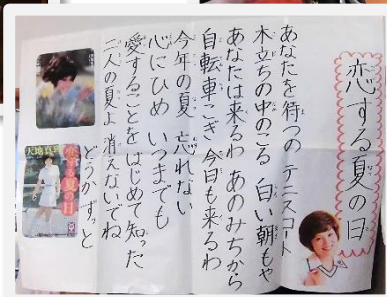 恋する夏の日
あなたを待つの テニスコート
木立ちの中のこる 白い朝もや
あなたは来るわ あのみちから
自転車こぎ 今日も来るわ
今年の夏 忘れない
心にひめ いつまでも
愛することを はじめて知った
二人の夏よ 消えないでね
どうか ずっと
天地真理
恋する夏の日